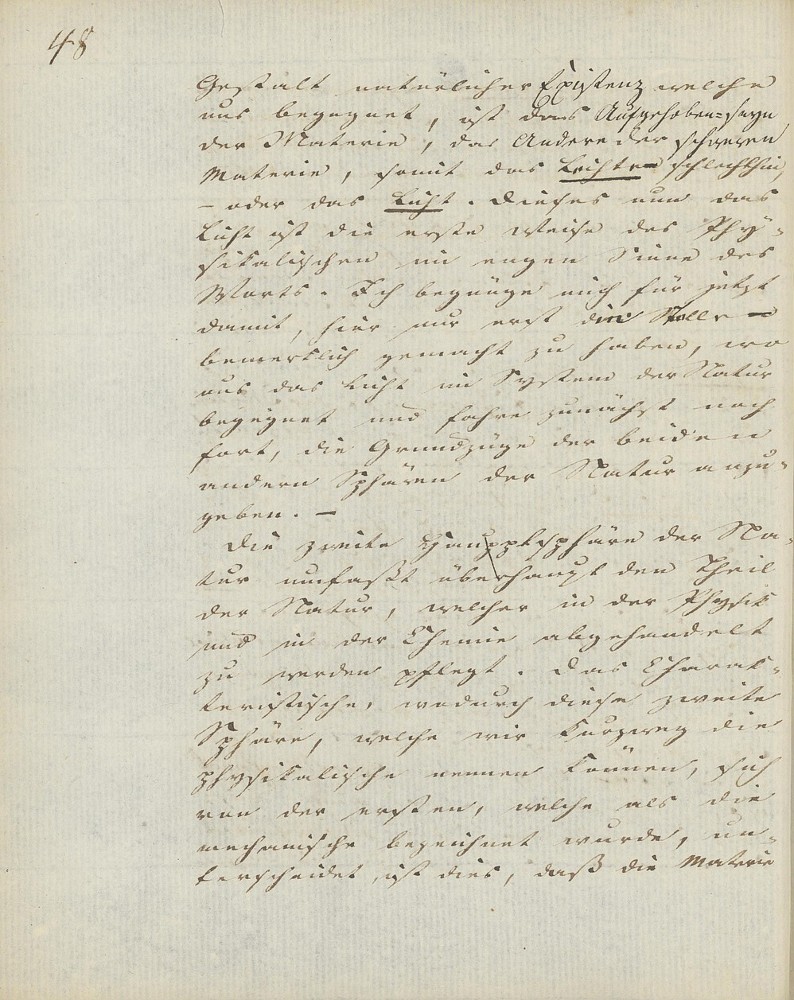 48
Gestalt natürlicher Existenz welche
uns begegnet, ist das Aufgehobenseyn
der Materie, das Andere der schweren
Materie, somit das Leichte schlechthin,
– oder das Licht. Dieses nun das
Licht ist die erste Weise des Phy-
sikalischen im engen Sinne des
Worts. Ich begnüge mich für jetzt
damit, hier nur erst die Stelle –
bemerklich gemacht zu haben, wo
uns das Licht im System der Natur
begegnet und fahre zunächst noch
fort, die Grundzüge der beiden
andern Sphären der Natur anzu-
geben. –
Die zweite Hauptsphäre der Na-
tur umfaßt überhaupt den Theil
der Natur, welcher in der Physik
und in der Chemie abgehandelt
zu werden pflegt. Das Charak-
teristische, wodurch diese zweite
Sphäre, welche wir kurzweg die
physikalische nennen können, sich
von der ersten, welche als die
mechanische bezeichnet wurde, un-
terscheidet, ist dies, daß die Materie